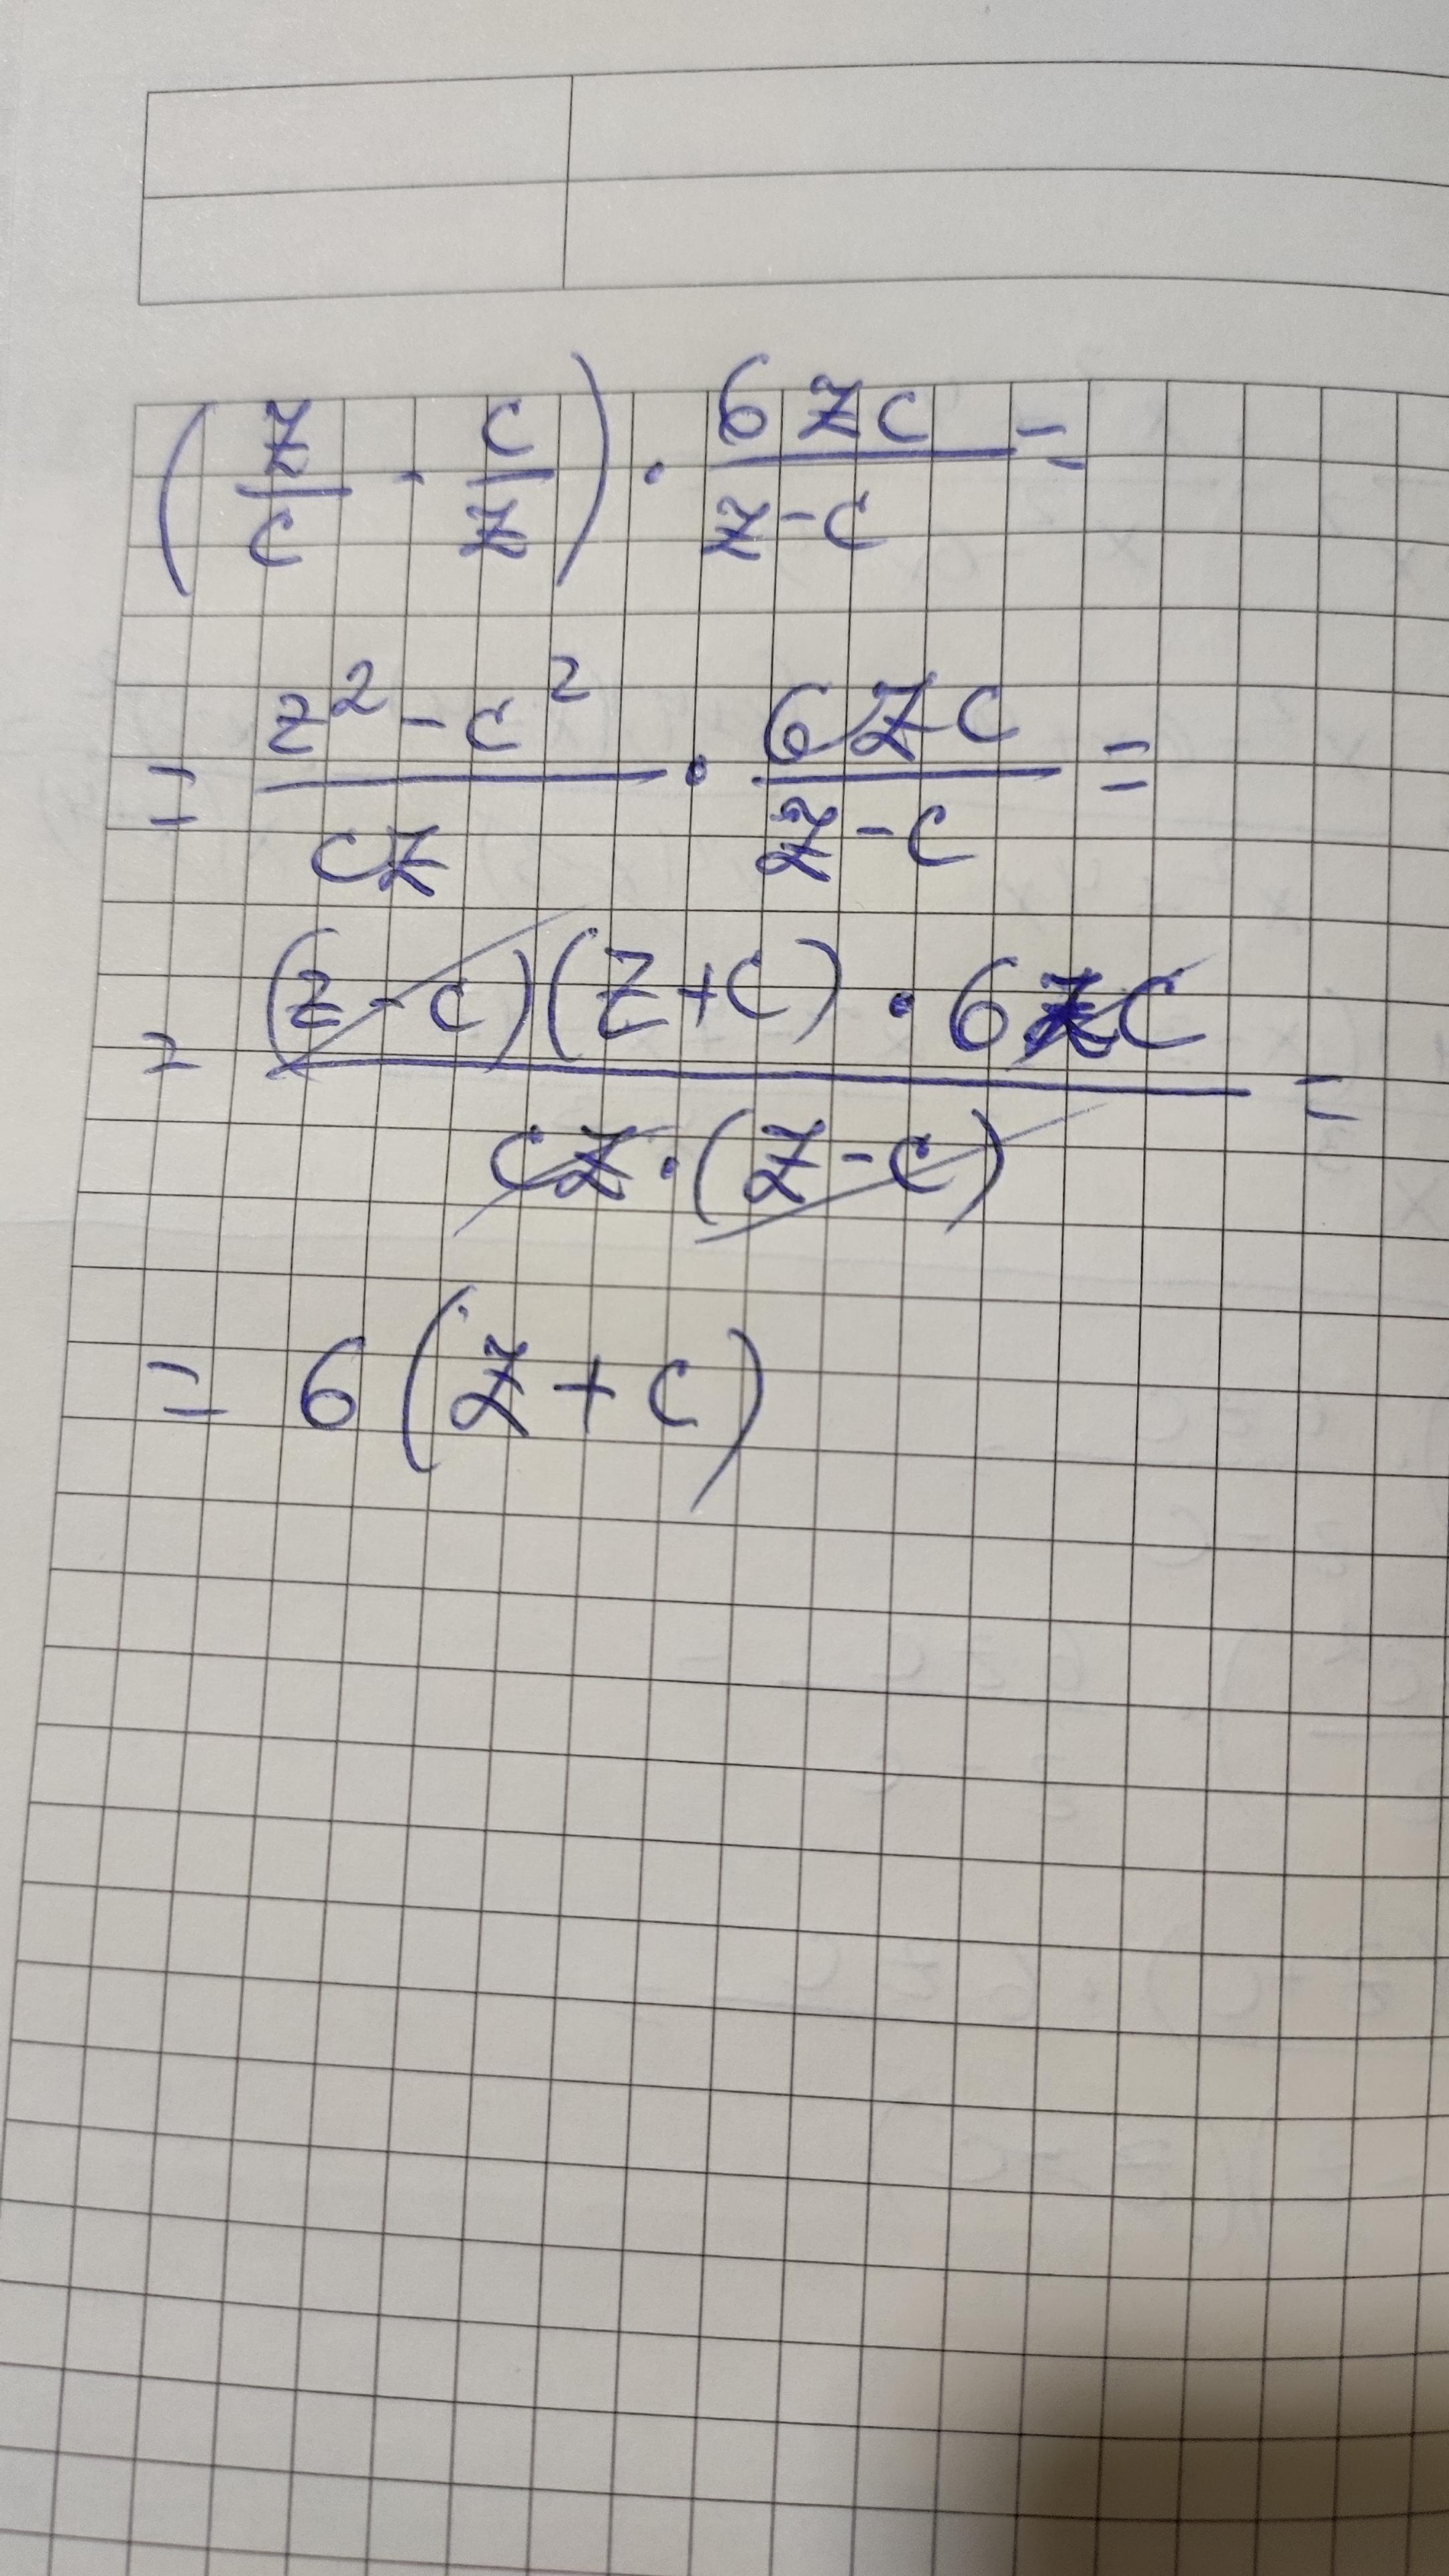 (z/c - c/z) · 6zc/(z-c) =
= (z² - c²)/(cz) · 6zc/(z-c) =
= ((z-c)(z+c) · 6zc)/(cz · (z-c)) =
= 6(z+c)